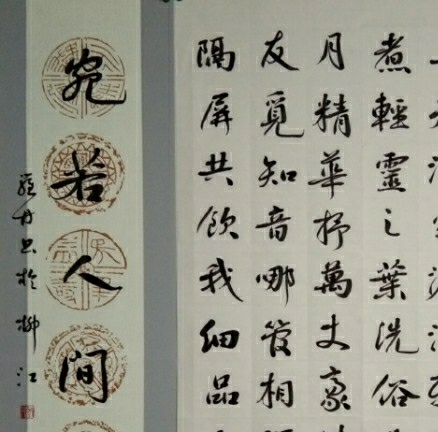 煮輕靈之葉洗俗
月精華抒萬丈豪
友覓知音哪管相
隔屏共飲我細品
宛若人間
丹书於柳江